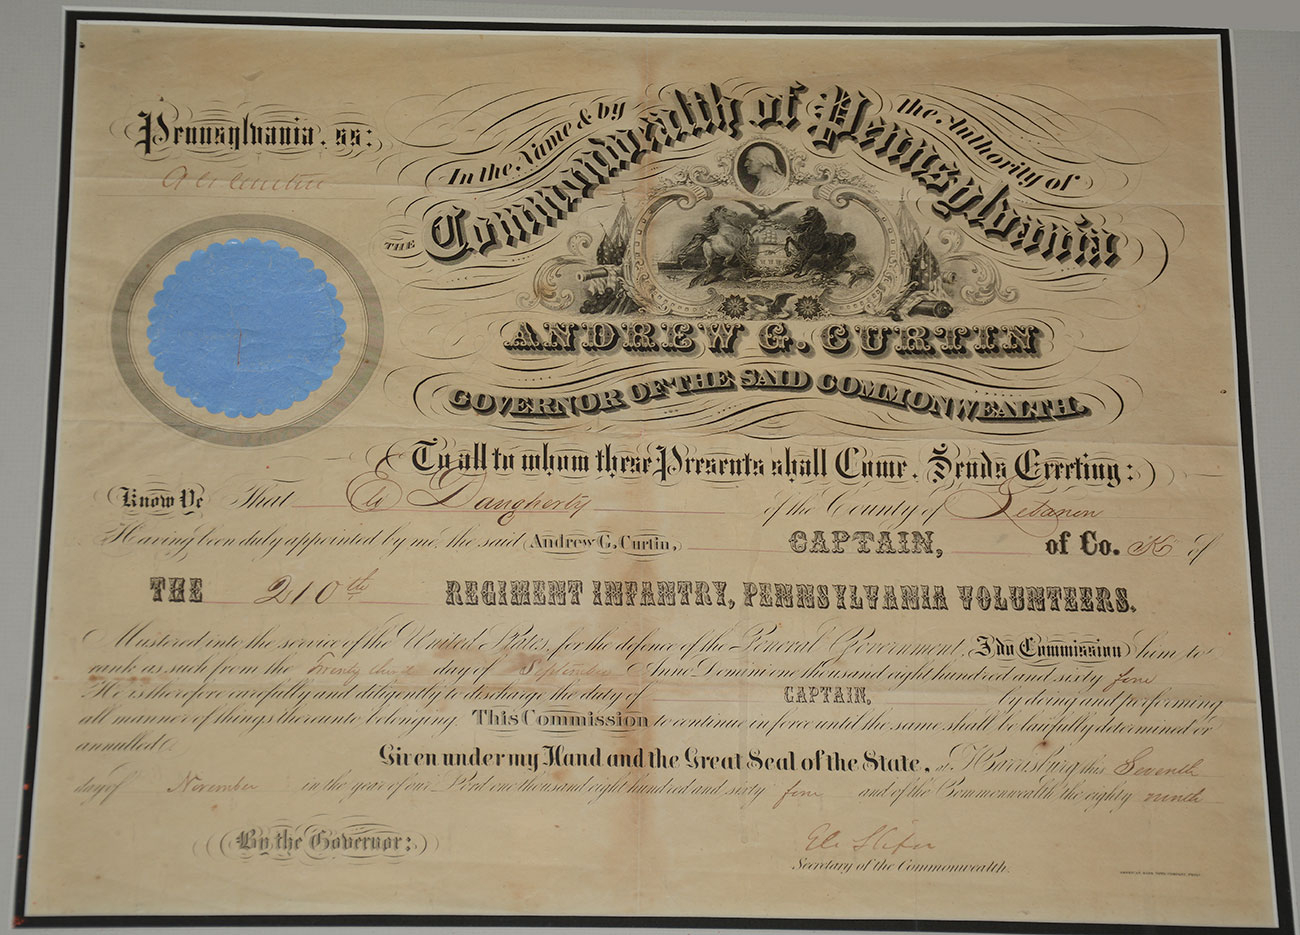 Pennsylvania, ss:
A G Curtin
In the Name & by the Authority of
THE Commonwealth of Pennsylvania
ANDREW G. CURTIN
GOVERNOR OF THE SAID COMMONWEALTH.
To all to whom these Presents shall Come, Sends Greeting:
Know Ye That Eli Daugherty of the County of Lebanon
Having been duly appointed by me, the said Andrew G. Curtin, CAPTAIN, of Co. K of
THE 210th REGIMENT INFANTRY, PENNSYLVANIA VOLUNTEERS.
Mustered into the service of the United States, for the defence of the General Government, I do Commission him to
rank as such from the twenty third day of September Anno Domini one thousand eight hundred and sixty four
He is therefore carefully and diligently to discharge the duty of CAPTAIN, by doing and performing
all manner of things thereunto belonging. This Commission to continue in force until the same shall be lawfully determined or
annulled.
Given under my Hand and the Great Seal of the State, at Harrisburg this Seventh
day of November in the year of our Lord one thousand eight hundred and sixty four and of the Commonwealth the eighty ninth
By the Governor:
Eli Slifer
Secretary of the Commonwealth.